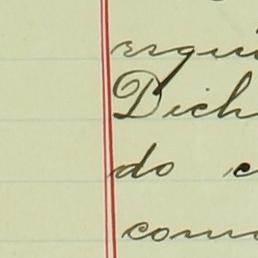 esqui
Dich
do c
com